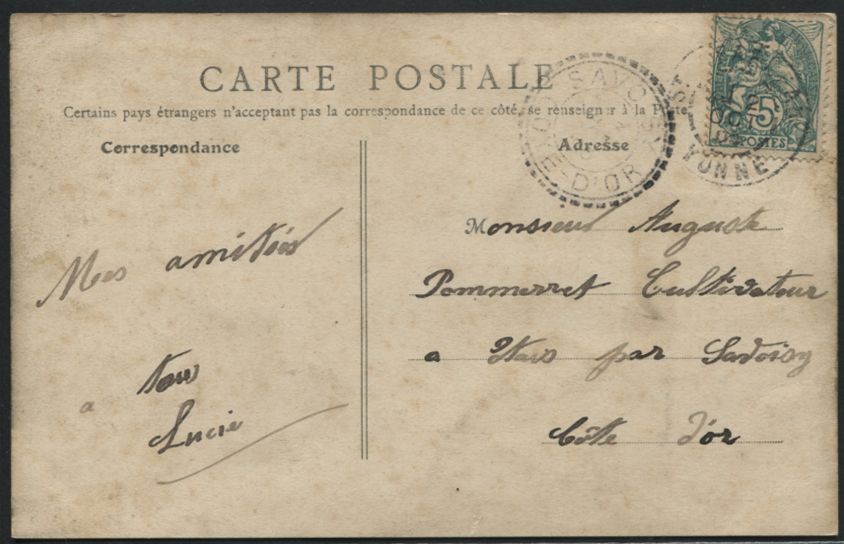 CARTE POSTALE
Certains pays étrangers n'acceptant pas la correspondance de ce côté, se renseigner à la Poste
Correspondance
Adresse
Mes amitiés
a tous
Lucie
Monsieur Auguste
Pommerret Cultivateur
a Etais par Savoisy
Côte d'or
SAVOISY
CÔTE-D'OR
YONNE
5
POSTES